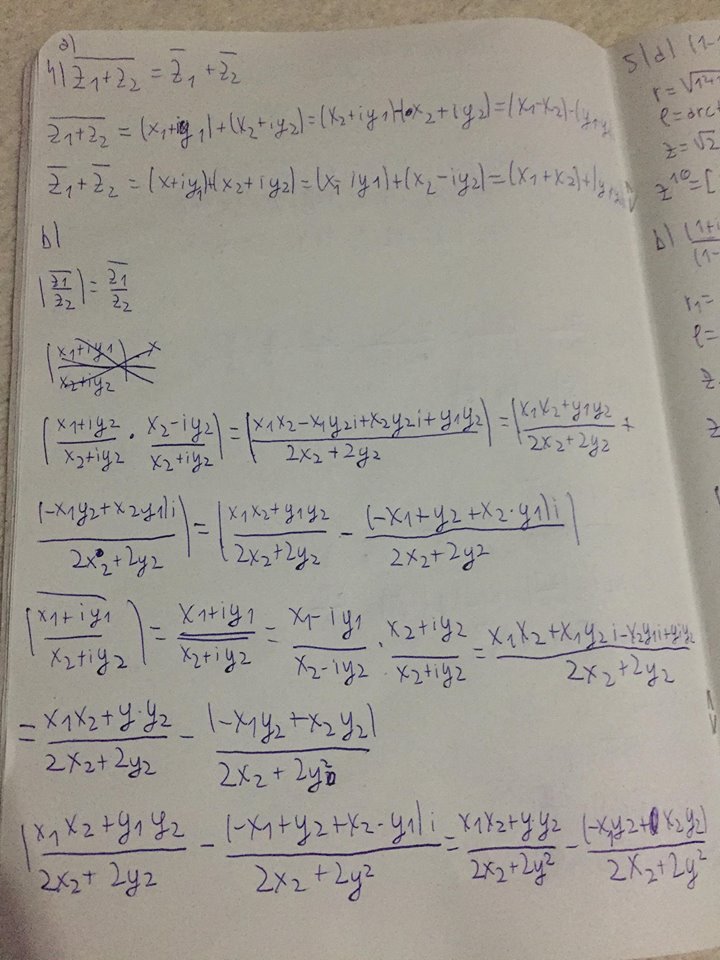 a)
4) \overline{z1+z2} = \overline{z}1 + \overline{z2}
\overline{z1+z2} = (x1+iy1)+(x2+iy2)=(x2+iy1)+(x2+iy2)=(x1-x2)-(y1
\overline{z}1+\overline{z}2 = (x+iy1)+(x2+iy2)=(x1-iy1)+(x2-iy2)=(x1+x2)+(y
b)
|\overline{z1}/z2| = \overline{z1}/z2
|x1+iy1/x2+iy2|
|x1+iy2/x2+iy2 · x2-iy2/x2+iy2| = |x1x2-x1y2i+x2y2i+y1y2/2x2+2y2| = |x1x2+y1y2/2x2+2y2 +
(-x1y2+x2y1)i/2x2+2y2| = |x1x2+y1y2/2x2+2y2 - (-x1+y2+x2·y1)i/2x2+2y2|
|\overline{x1+iy1}/x2+iy2| = x1+iy1/x2+iy2 = x1-iy1/x2-iy2 · x2+iy2/x2+iy2 = x1x2+x1y2i-x2y1i+y1y2/2x2+2y2
= x1x2+y·y2/2x2+2y2 - (-x1y2+x2y2)/2x2+2y²
|x1x2+y1y2/2x2+2y2 - (-x1+y2+x2-y1)i/2x2+2y² = x1x2+y·y2/2x2+2y² - (-x1y2+x2y2)/2x2+2y²
5) d) (1-
r=√
z=√2
z^10=[
b) (1+i/(1-
r1=
φ=
z
z